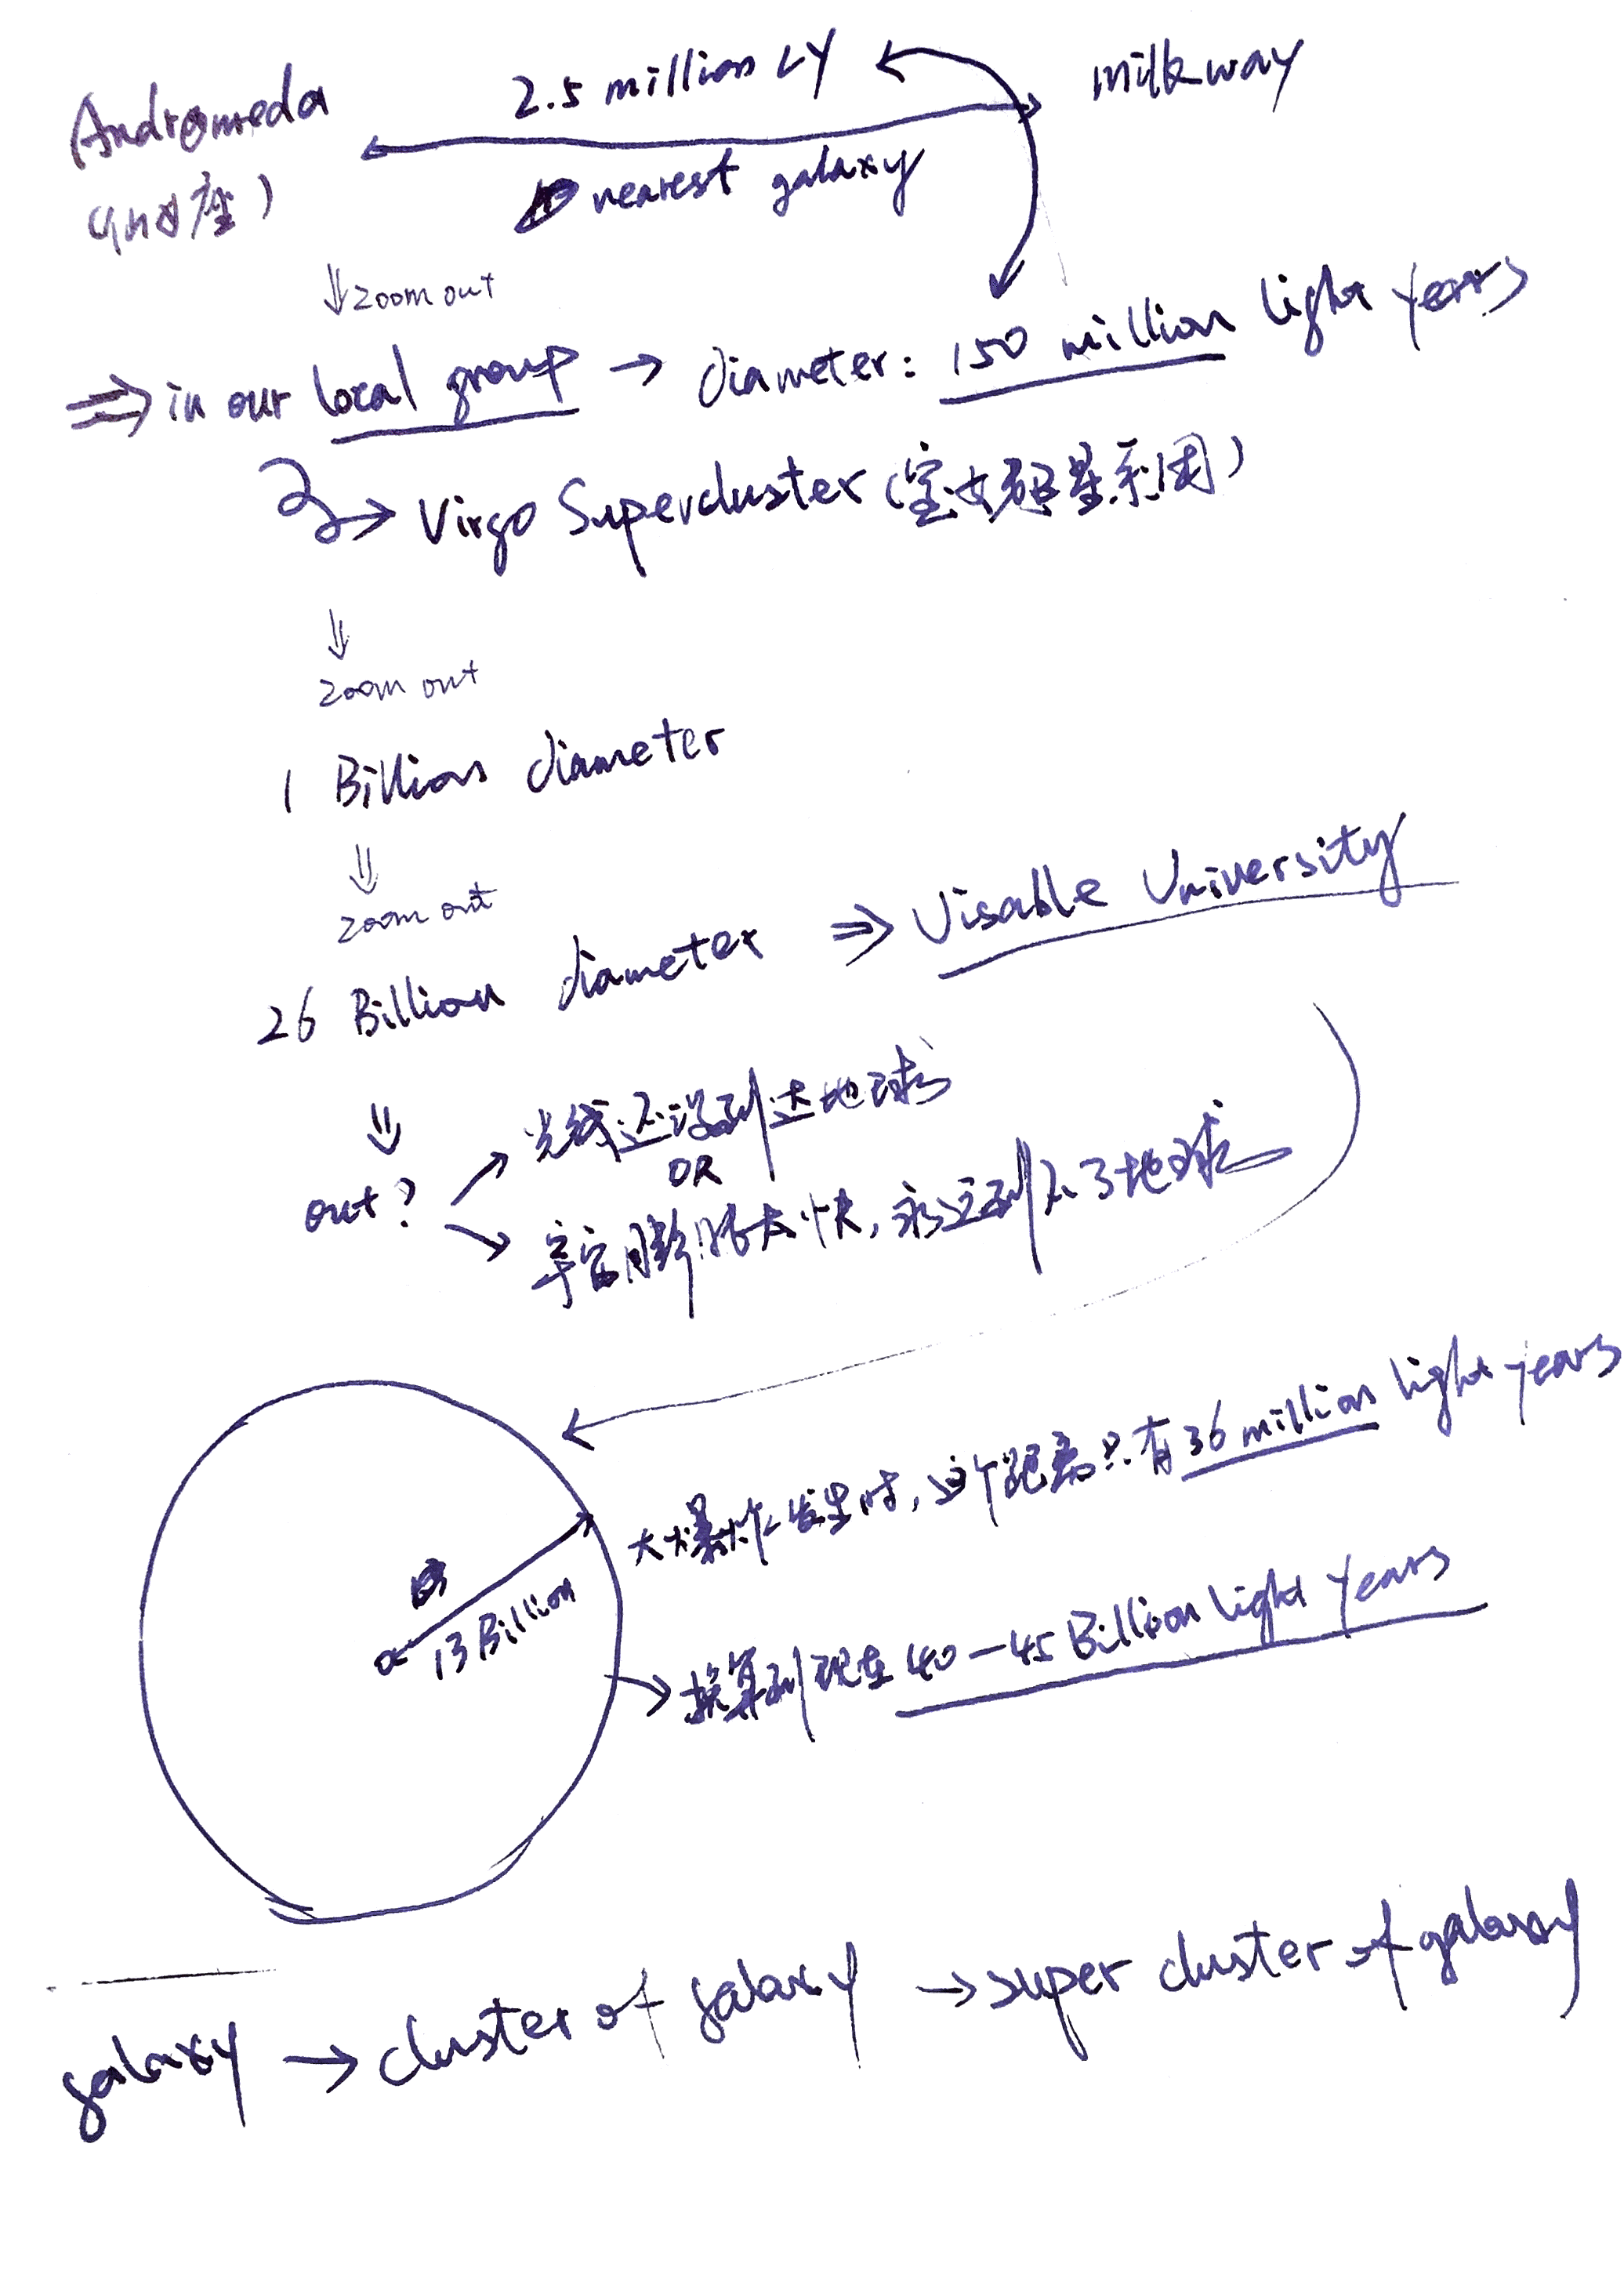 Andromeda
2.5 million LY
milkway
nearest galaxy
座)
zoom out
in our local group → diameter: 150 million light years
→ Virgo Supercluster (室女超星系团)
zoom out
1 Billion diameter
zoom out
26 Billion diameter ⇒ Visable University
out?
光线还没到达地球
OR
宇宙膨胀太快,永远到不了地球
大爆炸发生时,这个距离只有36 million light years
13 Billion
→ 换算到现在 40-45 Billion light years
galaxy → cluster of galaxy → super cluster of galaxy